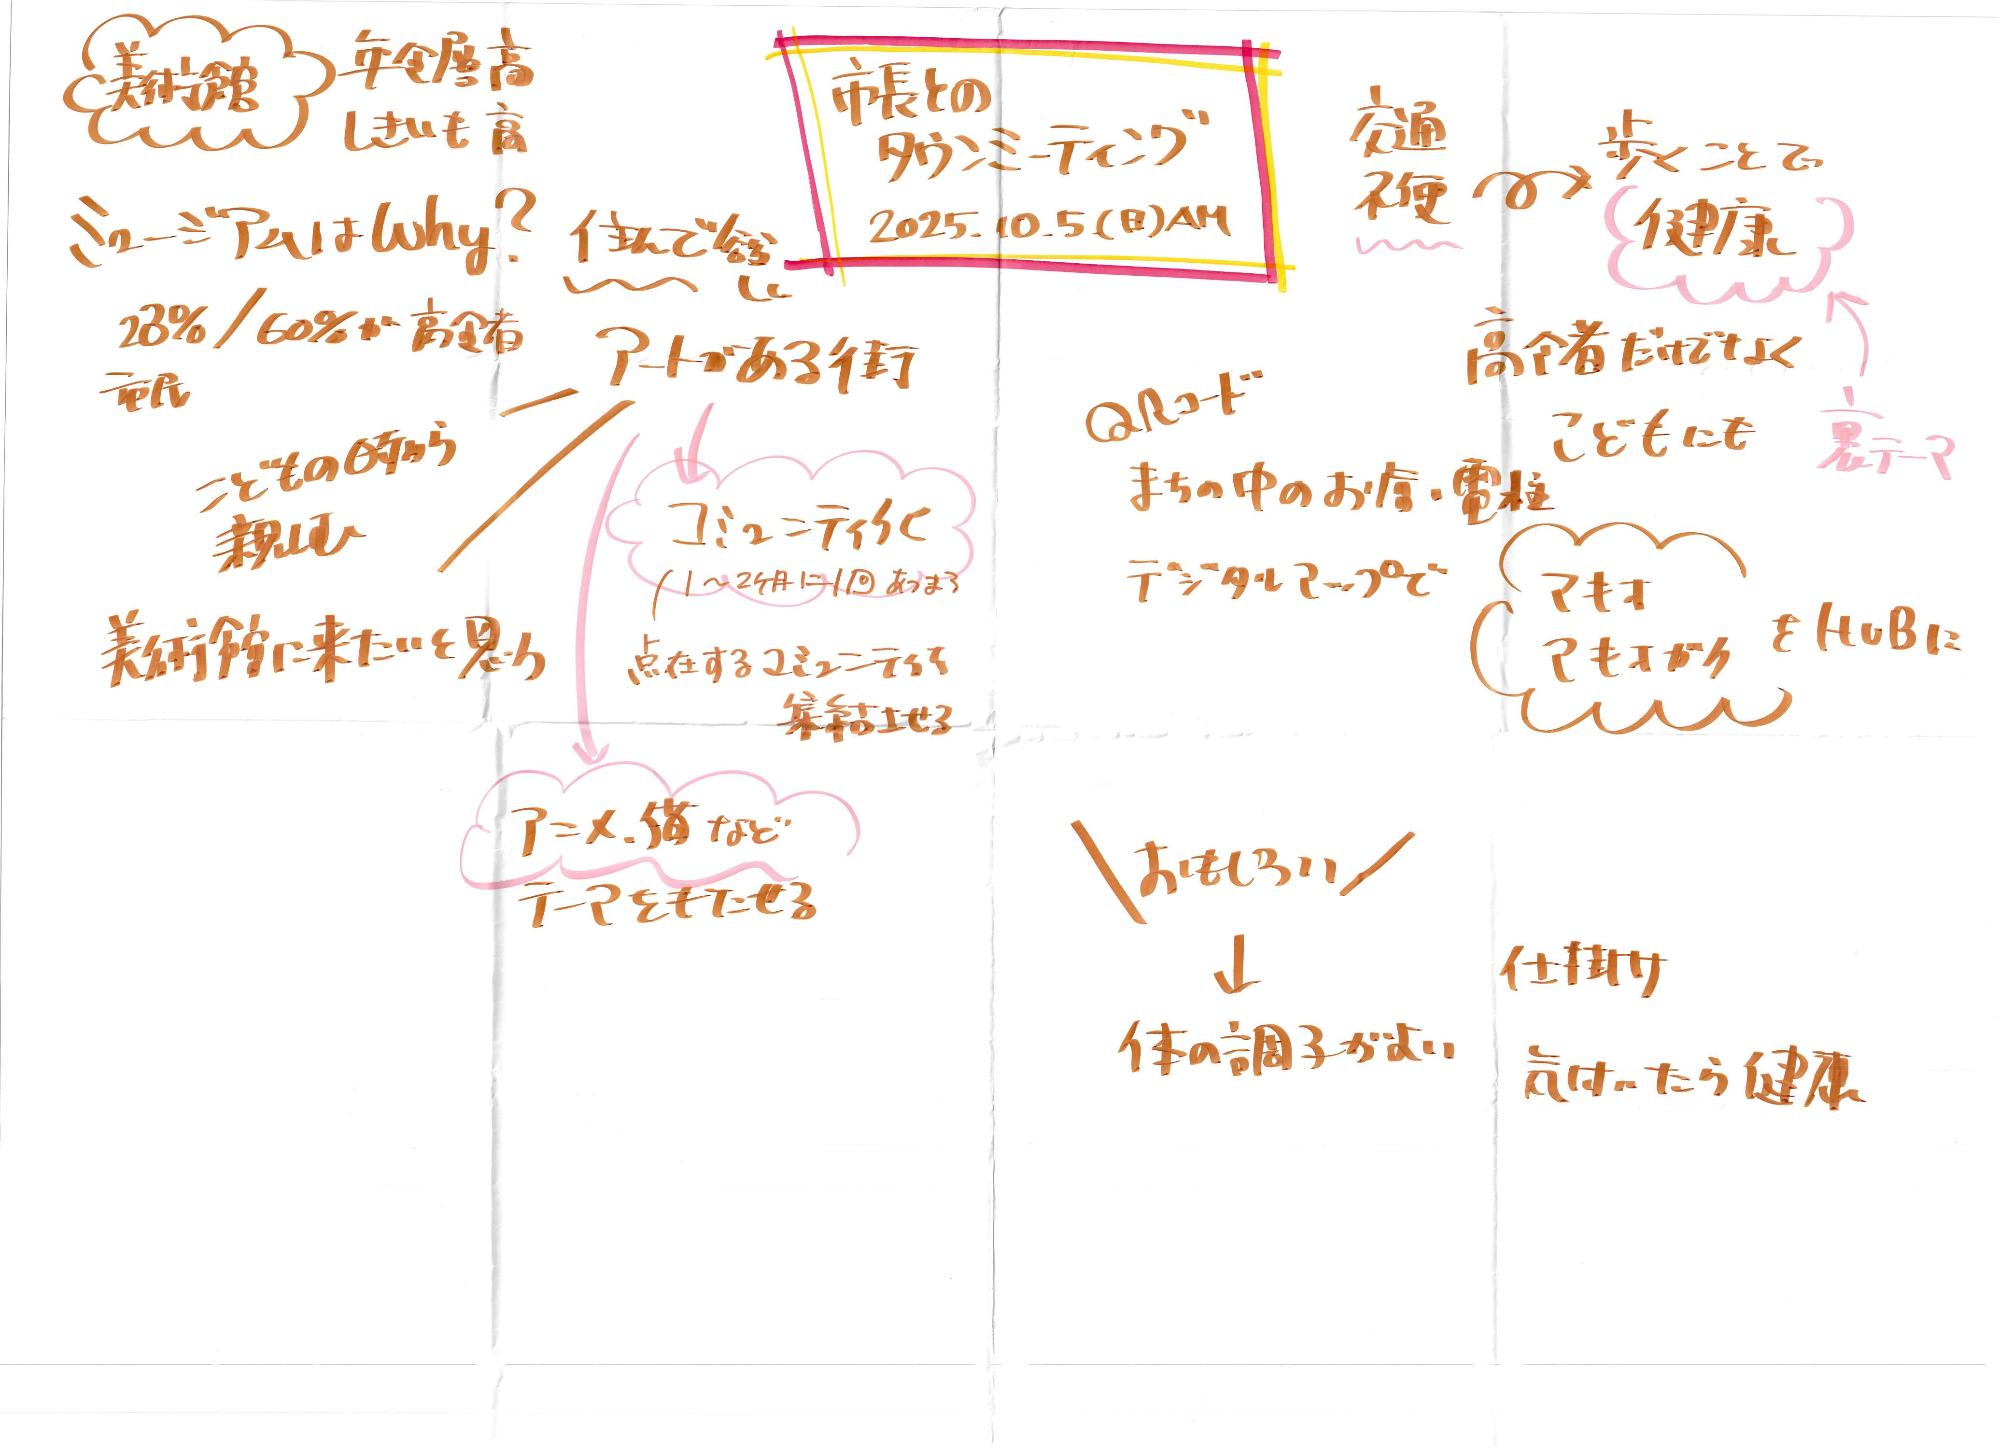 市長との
タウンミーティング
2025.10.5(日)AM
美術館
年令層高
しきいも高
ミュージアムはWhy?
28%/60%が高令者
市民
こどもの時から
親しむ
美術館に来たいと思う
住んで
アートがある街
コミュニティ化
1〜2ヶ月に1回あつまる
点在するコミュニティを
集結させる
アニメ、猫など
テーマをもたせる
交通
不便
歩くことで
健康
高令者だけでなく
こどもにも
裏テーマ
QRコード
まちの中のお店・電柱
デジタルマップで
マキオ
マキオがク
をHUBに
おもしろい
↓
体の調子がよい
仕掛け
気けいたら健康